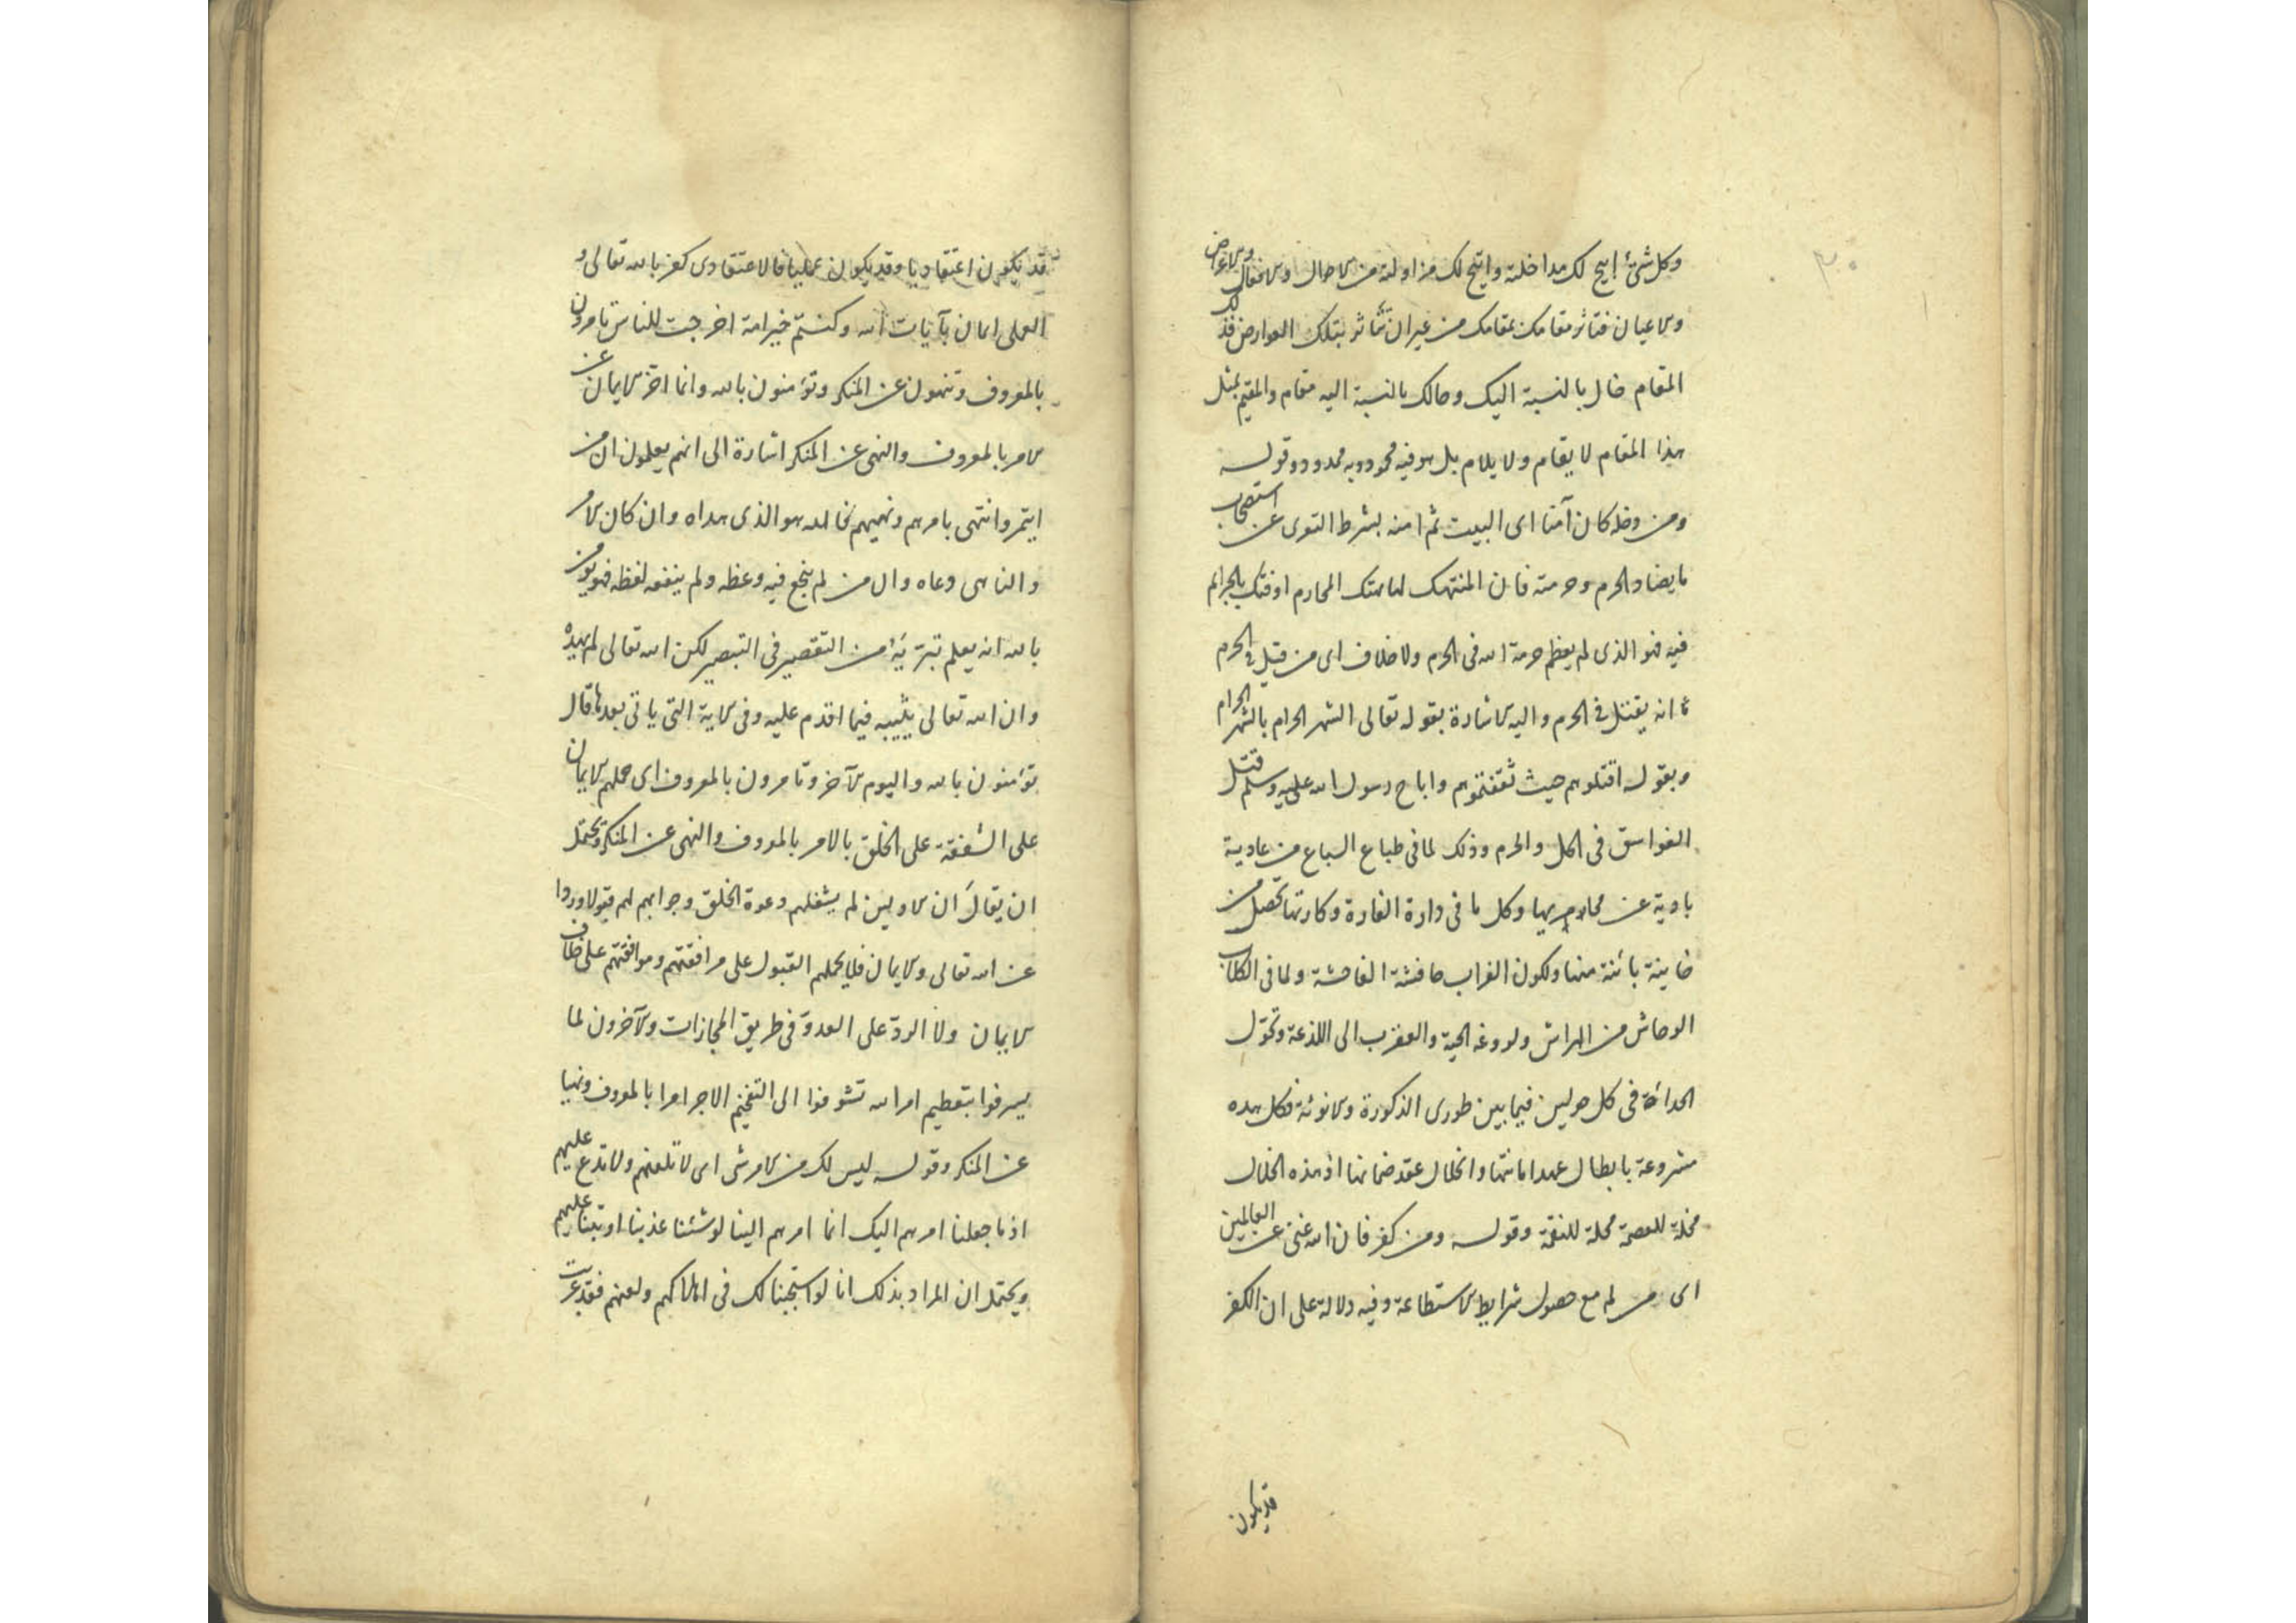 ٣٠
وكل شئ ابيح لك مداخلته واتيح لك مزاولته من الاحوال والافعال والاعراض
والاعيان فتاثر مقامك بمقامك من غير ان تتأثر بتلك العوارض فذلك
المقام حال بالنسبة اليك وحالك بالنسبة اليه مقام والمقيم بمثل
هذا المقام لا يقام ولا يلام بل هو فيه محمود وبه ممدود وقوله
ومن دخله كان آمنا اى البيت ثم امنه بشرط التوى عن استصحاب
ما يضاد الحرم وحرمته فان المنتهك لها بهتك المحارم او فتك بالجرائم
فيه هو الذى لم يعظم حرمة الله فى الحرم ولا خلاف اى من قتل فى الحرم
انه يقتل فى الحرم واليه الاشارة بقوله تعالى الشهر الحرام بالشهر الحرام
وبقوله اقتلوهم حيث ثقفتموهم واباح رسول الله عليه وسلم قتل
الفواسق فى الحل والحرم وذلك لما فى طباع السباع من عادية
بادية عن محارم بها وكل ما فى دارة الفارة وكارتها تحصل من
خاينة بائنة منها ولكون الغراب حافشة الفاحشة ولما فى الكلاب
الوحاش من الهراش ولدوغة الحية والعقرب الى اللذعة وتحول
الحدائة فى كل حولين فيما بين طورى الذكورة والانوثة فكل هذه
مشروعة بابطال عهد امانتها وانحلال عقد ضمانها اذ هذه الخلال
مخلة للعصمة محلة للنقمة وقوله ومن كفر فان الله غنى عن العالمين
اى من لم مع حصول شرايط الاستطاعة وفيه دلالة على ان الكفر
قد يكون
قد يكون اعتقاديا وقد يكون عمليا فالاعتقادى كفر بالله تعالى و
العملى ايمان بآيات الله وكنتم خير امة اخرجت للناس تامرون
بالمعروف وتنهون عن المنكر وتؤمنون بالله وانما اخر الايمان عن
الامر بالمعروف والنهى عن المنكر اشارة الى انهم يعلمون ان من
ايتمر وانتهى بامرهم ونهيهم فالله هو الذى هداه وان كان الامر
والناهى دعاه وان من لم ينجع فيه وعظه ولم ينفعه لفظه فهو يؤمن
بالله انه يعلم تبرئته من التقصير فى التبصير لكن الله تعالى لم يهده
وان الله تعالى يثيبه فيما اقدم عليه وفى الاية التى ياتى بعدها قال
تؤمنون بالله واليوم الآخر وتامرون بالمعروف اى حملهم الايمان
على الشفقة على الخلق بالامر بالمعروف والنهى عن المنكر ويحتمل
ان يقال ان الاولين لم يشغلهم دعوة الخلق وجوابهم لهم قبولا وردا
عن الله تعالى والايمان فلا يحملهم القبول على مرافقتهم وموافقتهم على خلاف
الايمان ولا الرد على العدو فى طريق المجازات والآخرون لما
يسرفوا بتعظيم امر الله تشوفوا الى التفخيم الاجر امرا بالمعروف ونهيا
عن المنكر وقوله ليس لك من الامر شئ اى لا تلعنهم ولا تدع عليهم
اذ ما جعلنا امرهم اليك انما امرهم الينا لو شئنا عذبنا او تبنا عليهم
ويحتمل ان المراد بذلك انا لو استجبنا لك فى اهلاكهم ولعنهم فقد عرت